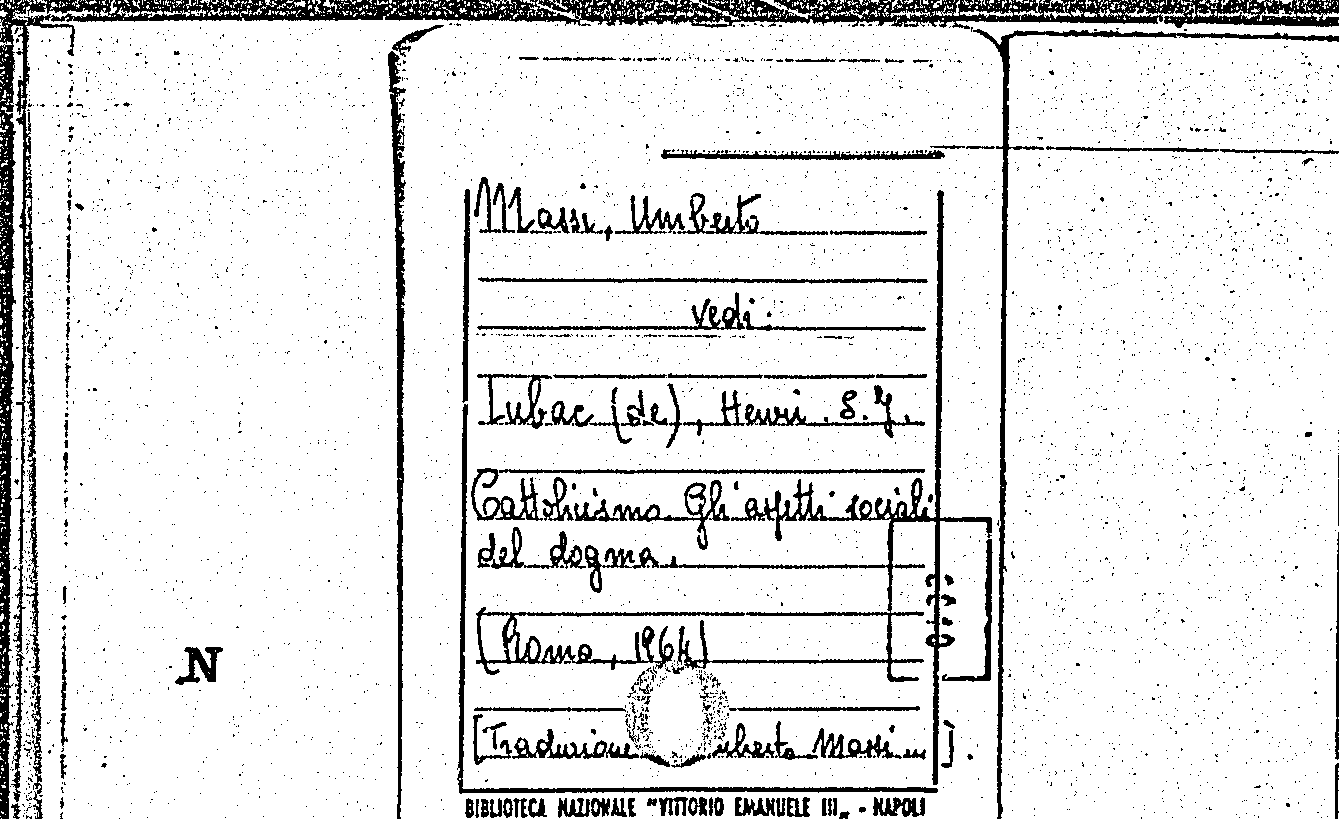 Massi, Umberto
vedi:
Lubac (de), Henri. S.J.
Cattolicismo. Gli aspetti sociali
del dogma.
(Roma, 1964)
N
[Traduzione Umberto Massi ]
BIBLIOTECA NAZIONALE "VITTORIO EMANUELE III„ - NAPOLI